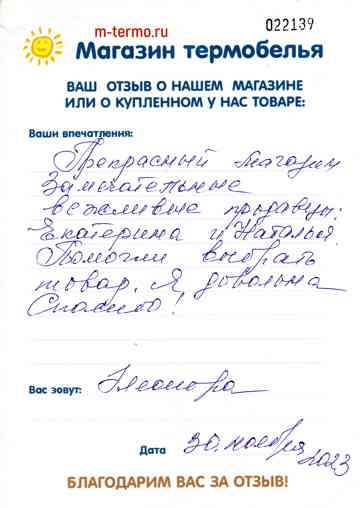 m-termo.ru
022139
Магазин термобелья
ВАШ ОТЗЫВ О НАШЕМ МАГАЗИНЕ
ИЛИ О КУПЛЕННОМ У НАС ТОВАРЕ:
Ваши впечатления:
Прекрасный магазин
Замечательные
вежливые продавцы:
Екатерина и Наталья.
Помогли выбрать
товар. Я довольна
Спасибо!
Вас зовут: Элеонора
Дата 30. ноября
2023
БЛАГОДАРИМ ВАС ЗА ОТЗЫВ!